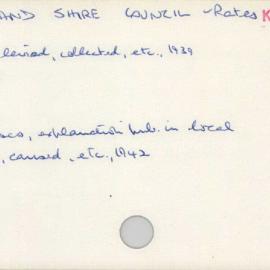 AND SHIRE COUNCIL - Rates K
levied, collected, etc., 1939
explanation pub. in local
, caused, etc., 1942